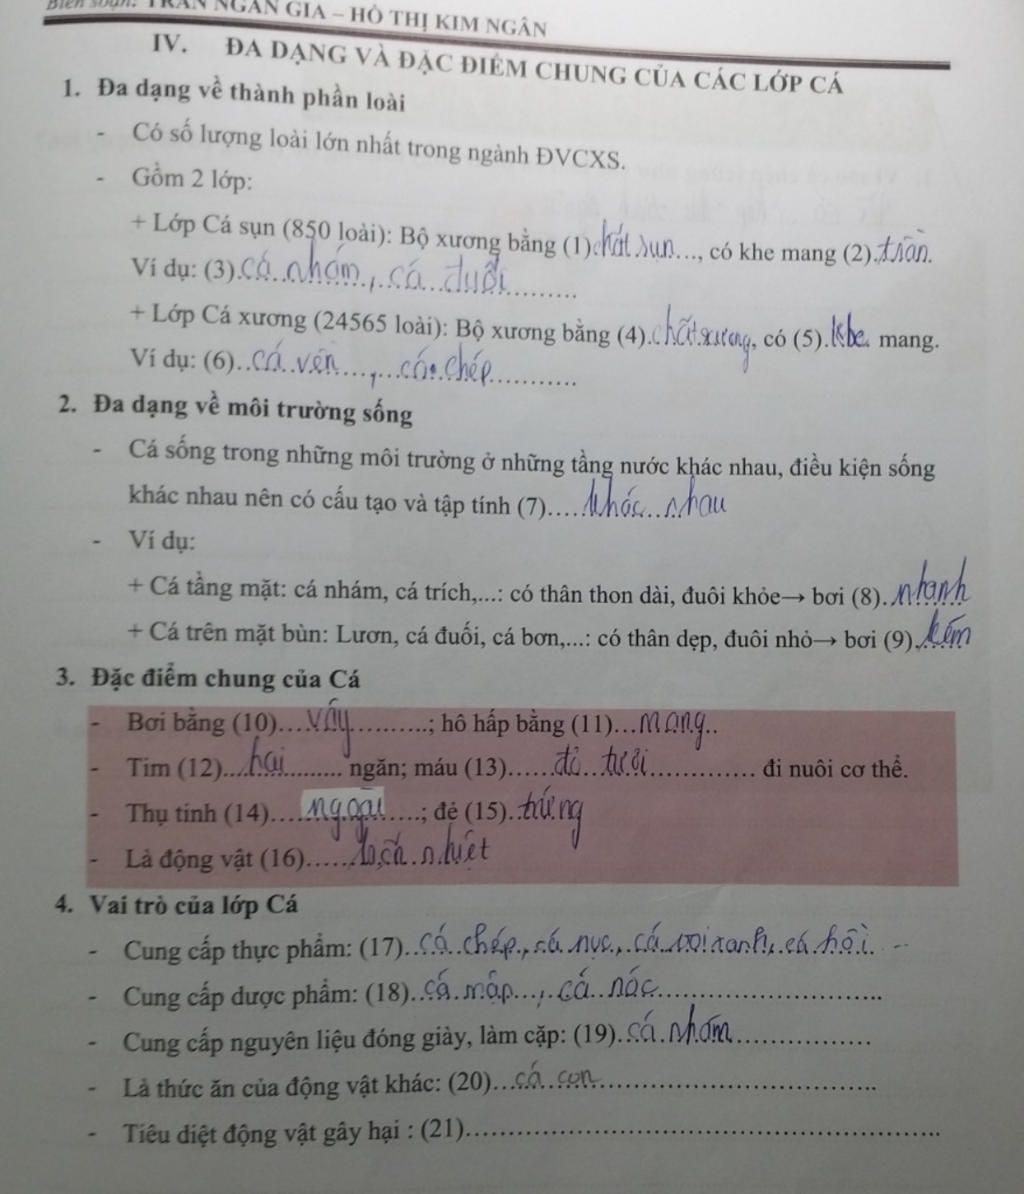 Biên soạn: TRẦN NGÂN GIA – HỒ THỊ KIM NGÂN
IV. ĐA DẠNG VÀ ĐẶC ĐIỂM CHUNG CỦA CÁC LỚP CÁ
1. Đa dạng về thành phần loài
- Có số lượng loài lớn nhất trong ngành ĐVCXS.
- Gồm 2 lớp:
+ Lớp Cá sụn (850 loài): Bộ xương bằng (1) chất sụn..., có khe mang (2). trần.
Ví dụ: (3). cá nhám, cá đuối..........
+ Lớp Cá xương (24565 loài): Bộ xương bằng (4). chất xương, có (5). khe. mang.
Ví dụ: (6).. cá vền...,.. cá chép..........
2. Đa dạng về môi trường sống
- Cá sống trong những môi trường ở những tầng nước khác nhau, điều kiện sống
khác nhau nên có cấu tạo và tập tính (7).... khác nhau
- Ví dụ:
+ Cá tầng mặt: cá nhám, cá trích,...: có thân thon dài, đuôi khỏe→ bơi (8). nhanh
+ Cá trên mặt bùn: Lươn, cá đuối, cá bơn,...: có thân dẹp, đuôi nhỏ→ bơi (9). kém
3. Đặc điểm chung của Cá
- Bơi bằng (10)... vây..........; hô hấp bằng (11)... mang..
- Tim (12)... hai.......... ngăn; máu (13)..... đỏ tươi.............. đi nuôi cơ thể.
- Thụ tinh (14).... ngoài....; đẻ (15).. trứng
- Là động vật (16)..... biến nhiệt
4. Vai trò của lớp Cá
- Cung cấp thực phẩm: (17).. cá chép, cá nục, cá voi xanh, cá hồi. --
- Cung cấp dược phẩm: (18).. cá mập..., cá nóc..........................
- Cung cấp nguyên liệu đóng giày, làm cặp: (19). cá nhám...............
- Là thức ăn của động vật khác: (20)... cá con..............................
- Tiêu diệt động vật gây hại : (21)..................................................